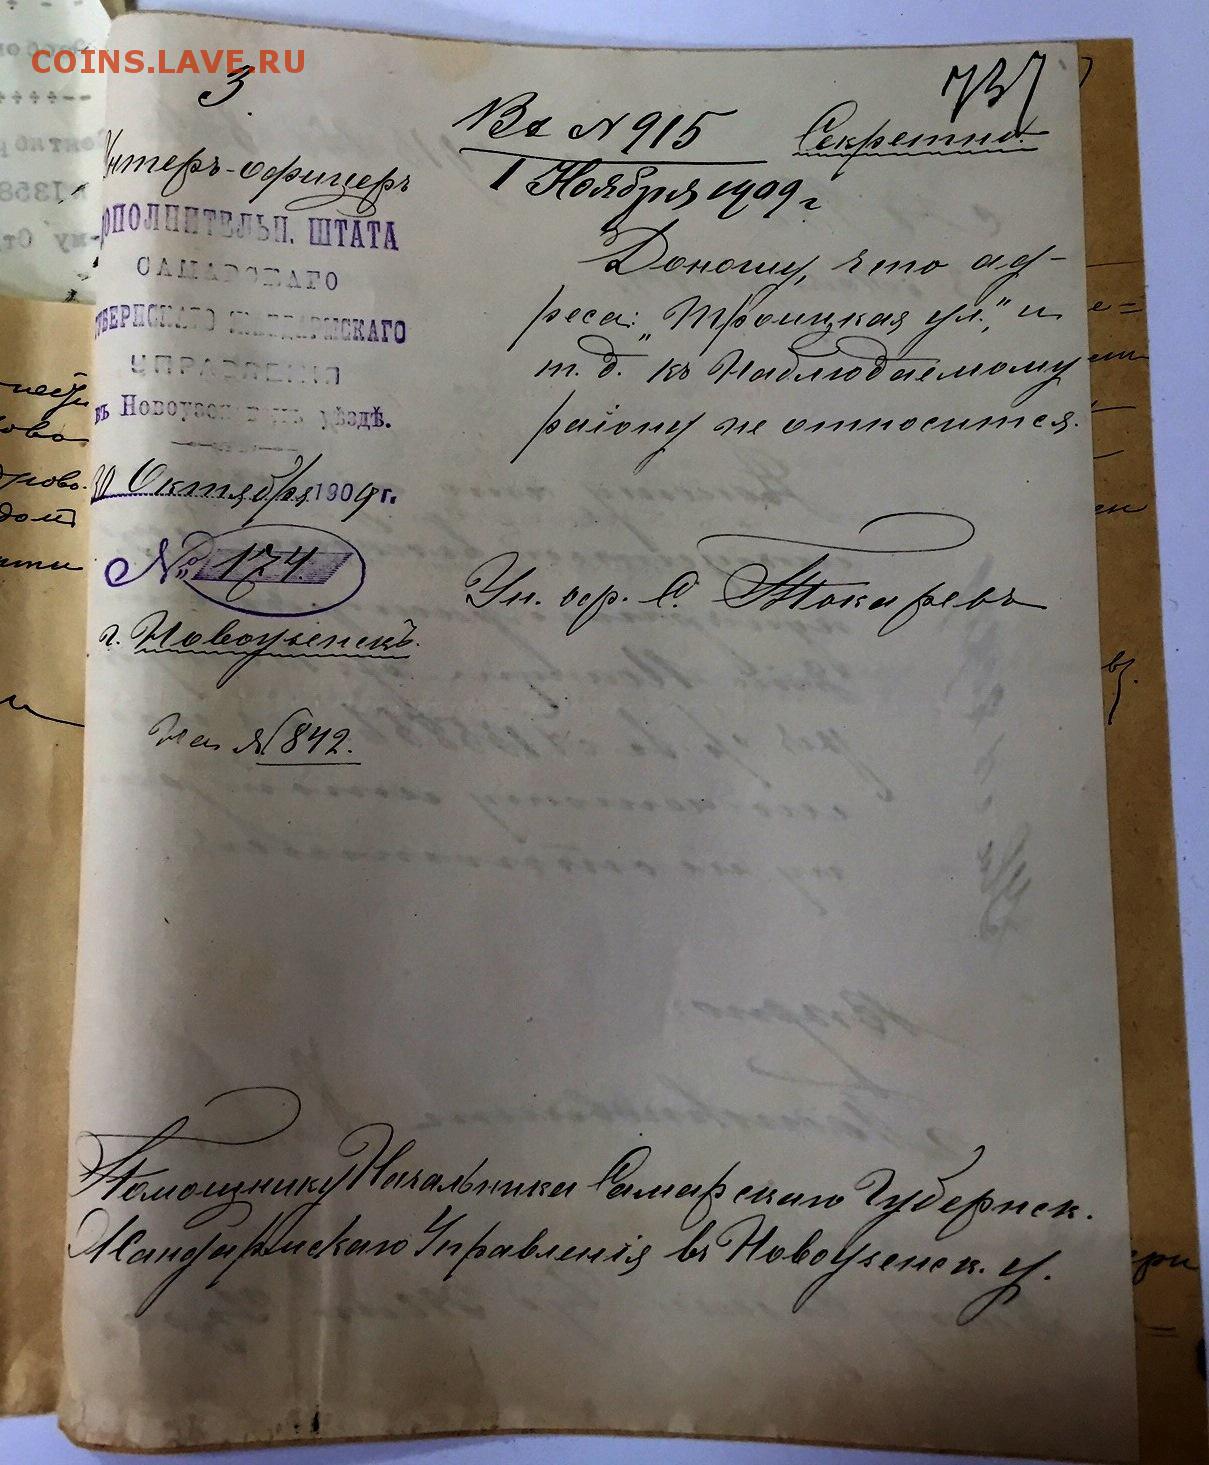 COINS.LAVE.RU
3.
737
Унтеръ-офицеръ
ДОПОЛНИТЕЛЬН. ШТАТА
САМАРСКАГО
ГУБЕРНСКАГО ЖАНДАРМСКАГО
УПРАВЛЕНІЯ
въ Новоузенскомъ уѣздѣ.
30 Октября 1909 г.
№ 174.
г. Новоузенскъ.
На № 842.
Вх № 915
1 Ноября 1909 г
Секретно.
Доношу, что ад-
реса: „Троицкая ул.", и
т. д. къ наблюдаемому
району не относится.
Ун. оф. С. Токаревъ
Помощнику Начальника Самарскаго Губернск.
Жандармскаго Управленія въ Новоузенск. у.